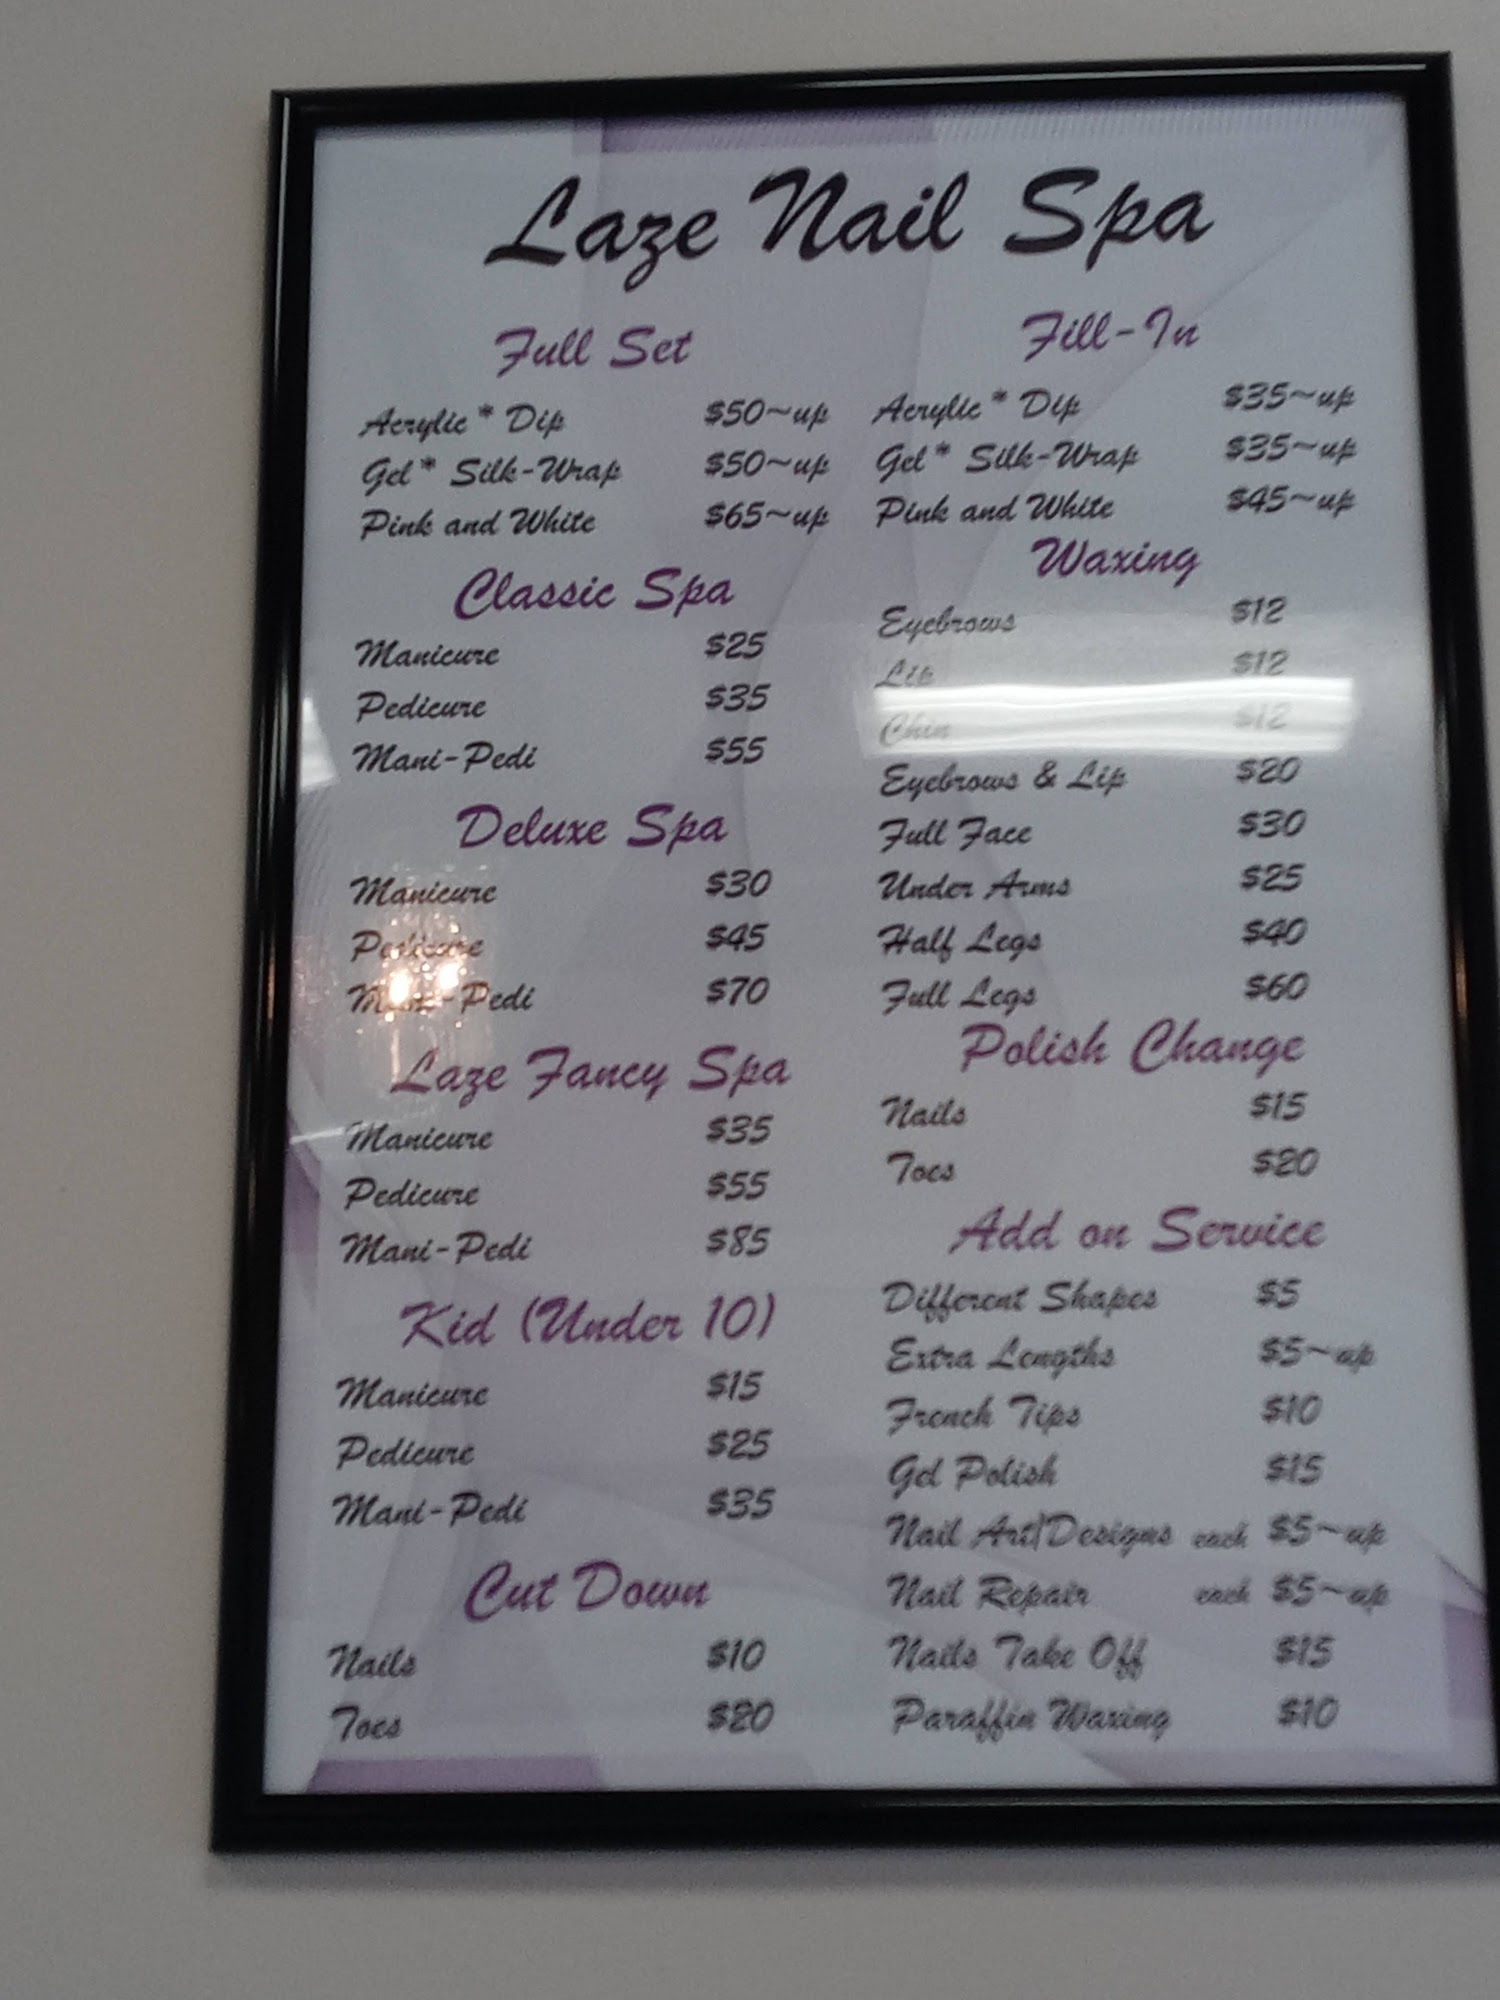 Laze Nail Spa
Full Set
Acrylic * Dip $50~up
Gel * Silk-Wrap $50~up
Pink and White $65~up
Classic Spa
Manicure $25
Pedicure $35
Mani-Pedi $55
Deluxe Spa
Manicure $30
Pedicure $45
Mani-Pedi $70
Laze Fancy Spa
Manicure $35
Pedicure $55
Mani-Pedi $85
Kid (Under 10)
Manicure $15
Pedicure $25
Mani-Pedi $35
Cut Down
Nails $10
Toes $20
Fill-In
Acrylic * Dip $35~up
Gel * Silk-Wrap $35~up
Pink and White $45~up
Waxing
Eyebrows $12
Lip $12
Chin $12
Eyebrows & Lip $20
Full Face $30
Under Arms $25
Half Legs $40
Full Legs $60
Polish Change
Nails $15
Toes $20
Add on Service
Different Shapes $5
Extra Lengths $5~up
French Tips $10
Gel Polish $15
Nail Art/Designs each $5~up
Nail Repair each $5~up
Nails Take Off $15
Paraffin Waxing $10